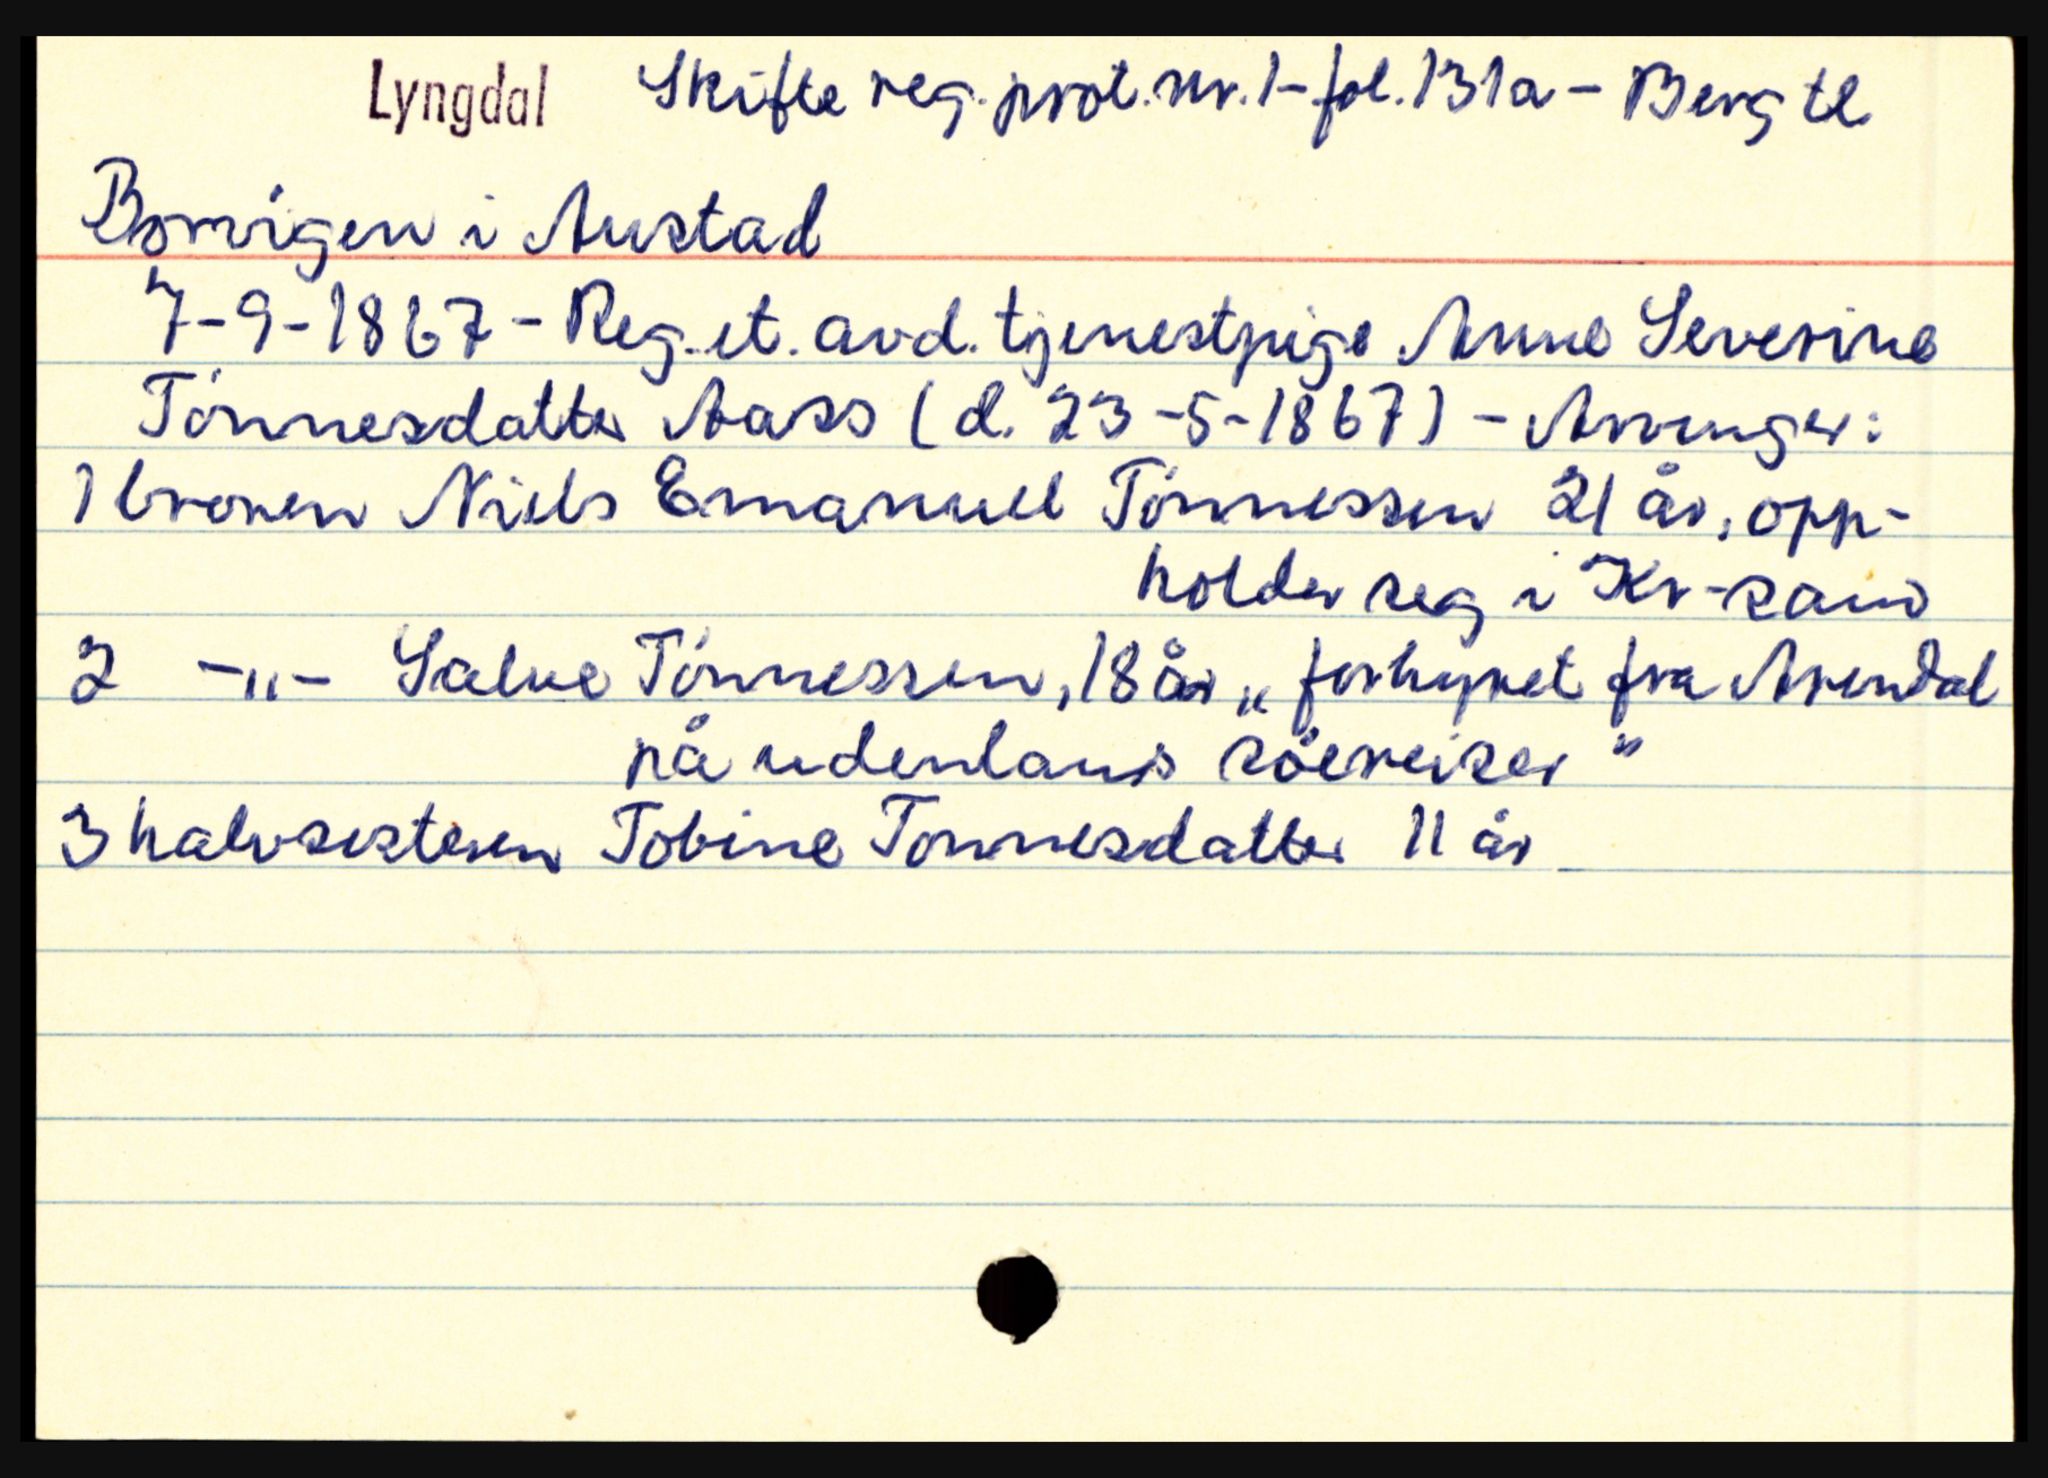 Lyngdal Skifte reg. prot. nr. 1 - fol. 131a - Berg tl.
Borvigen i Austad
7-9-1867 - Reg. et. avd. tjenestpige Anne Severine
Tónnesdatter Aass (d. 23-5-1867) - Arvinger:
1 broren Niels Emanuel Tónnessen 21 år, opp-
holder seg i Kr-sand
2 -"- Salve Tónnessen, 18 år „forhyret fra Arendal
på udenlands söereiser"
3 halvsøsteren Tobine Tonnesdatter 11 år